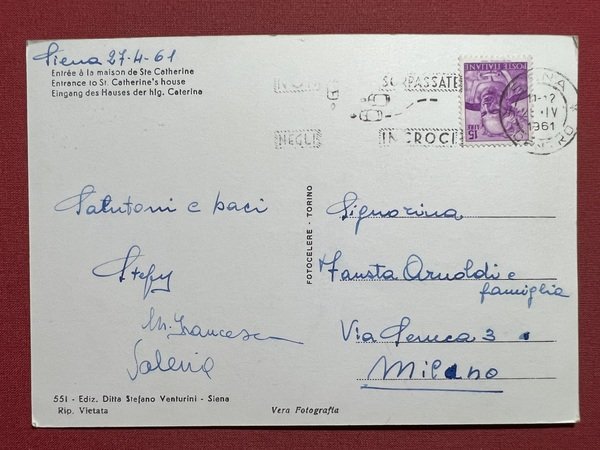 Siena 27-4-61
Entrée à la maison de Ste Catherine
Entrance to St. Catherine's house
Eingang des Hauses der hlg. Caterina
NON SORPASSATE
NEGLI INCROCI
POSTE ITALIANE
15 LIRE
SIENA
11-12
IV
1961
Salutoni e baci
Stefy
M. Francesca
Valeria
FOTOCELERE - TORINO
Signorina
Fausta Arnoldi e
famiglia
Via 3
Milano
551 - Ediz. Ditta Stefano Venturini - Siena
Rip. Vietata
Vera Fotografia